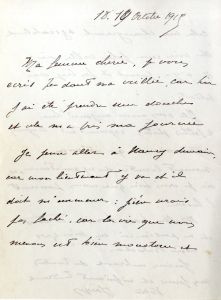 18. 19 Octobre 1915
Ma femme chérie, je vous
écris pendant ma veillée, car hier
j'ai été prendre une douche
et cela m'a pris ma journée
Je pense aller à Nancy demain,
car mon lieutenant y va et il
doit m'emmener : j'en serais
pas fâché, car la vie que nous
menons est bien monotone et